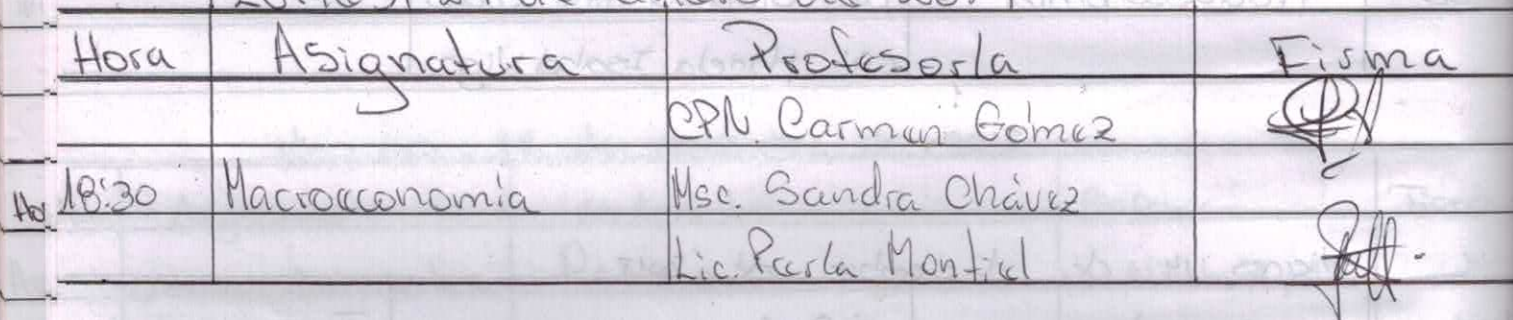 Hora Asignatura Profesor/a Firma
CPN. Carmen Gómez
18:30 Macroeconomía Msc. Sandra Chávez
Lic. Perla Montiel